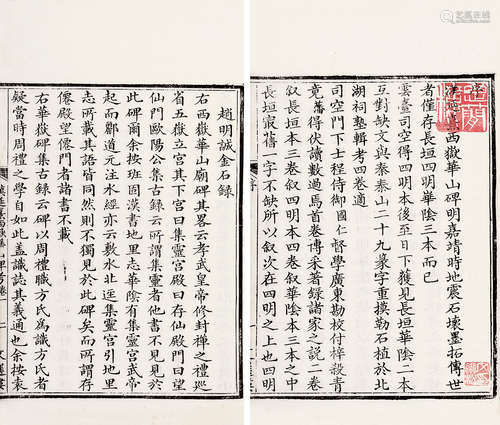 漢延熹西嶽華山碑明嘉靖時地震石壞墨拓傳世
者僅存長垣四明華陰三本而已
雲臺司空得四明本後至日下獲見長垣華陰二本
互對缺文與秦泰山二十九篆字重摸勒石植於北
湖祠塾輯考四卷適
司空門下士程侍御國仁督學廣東勘校付梓殺青
竟藩得伏讀數過焉首卷博采著錄諸家之說二卷
敘長垣本三卷敘四明本四卷敘華陰本三本之中
長垣最舊一字不缺所以敘次在四明之上也四明
趙明誠金石錄
右西嶽華山廟碑其畧云孝武皇帝修封禪之禮廵
省五嶽立宮其下宮曰集靈宮殿曰存仙殿門曰望
仙門歐陽公集古錄云所謂集靈者他書不見見於
此碑爾余按班固漢書地里志華陰有集靈宮武帝
起而酈道元注水經亦云敷水北逕集靈宮引地里
志所載其語皆同然則不獨見於此碑矣而所謂存
僊殿望僊門者諸書不載
右華嶽碑集古錄云碑以周禮職方氏爲識方氏者
疑當時周禮之學自如此盖識誌其義通也余按袁